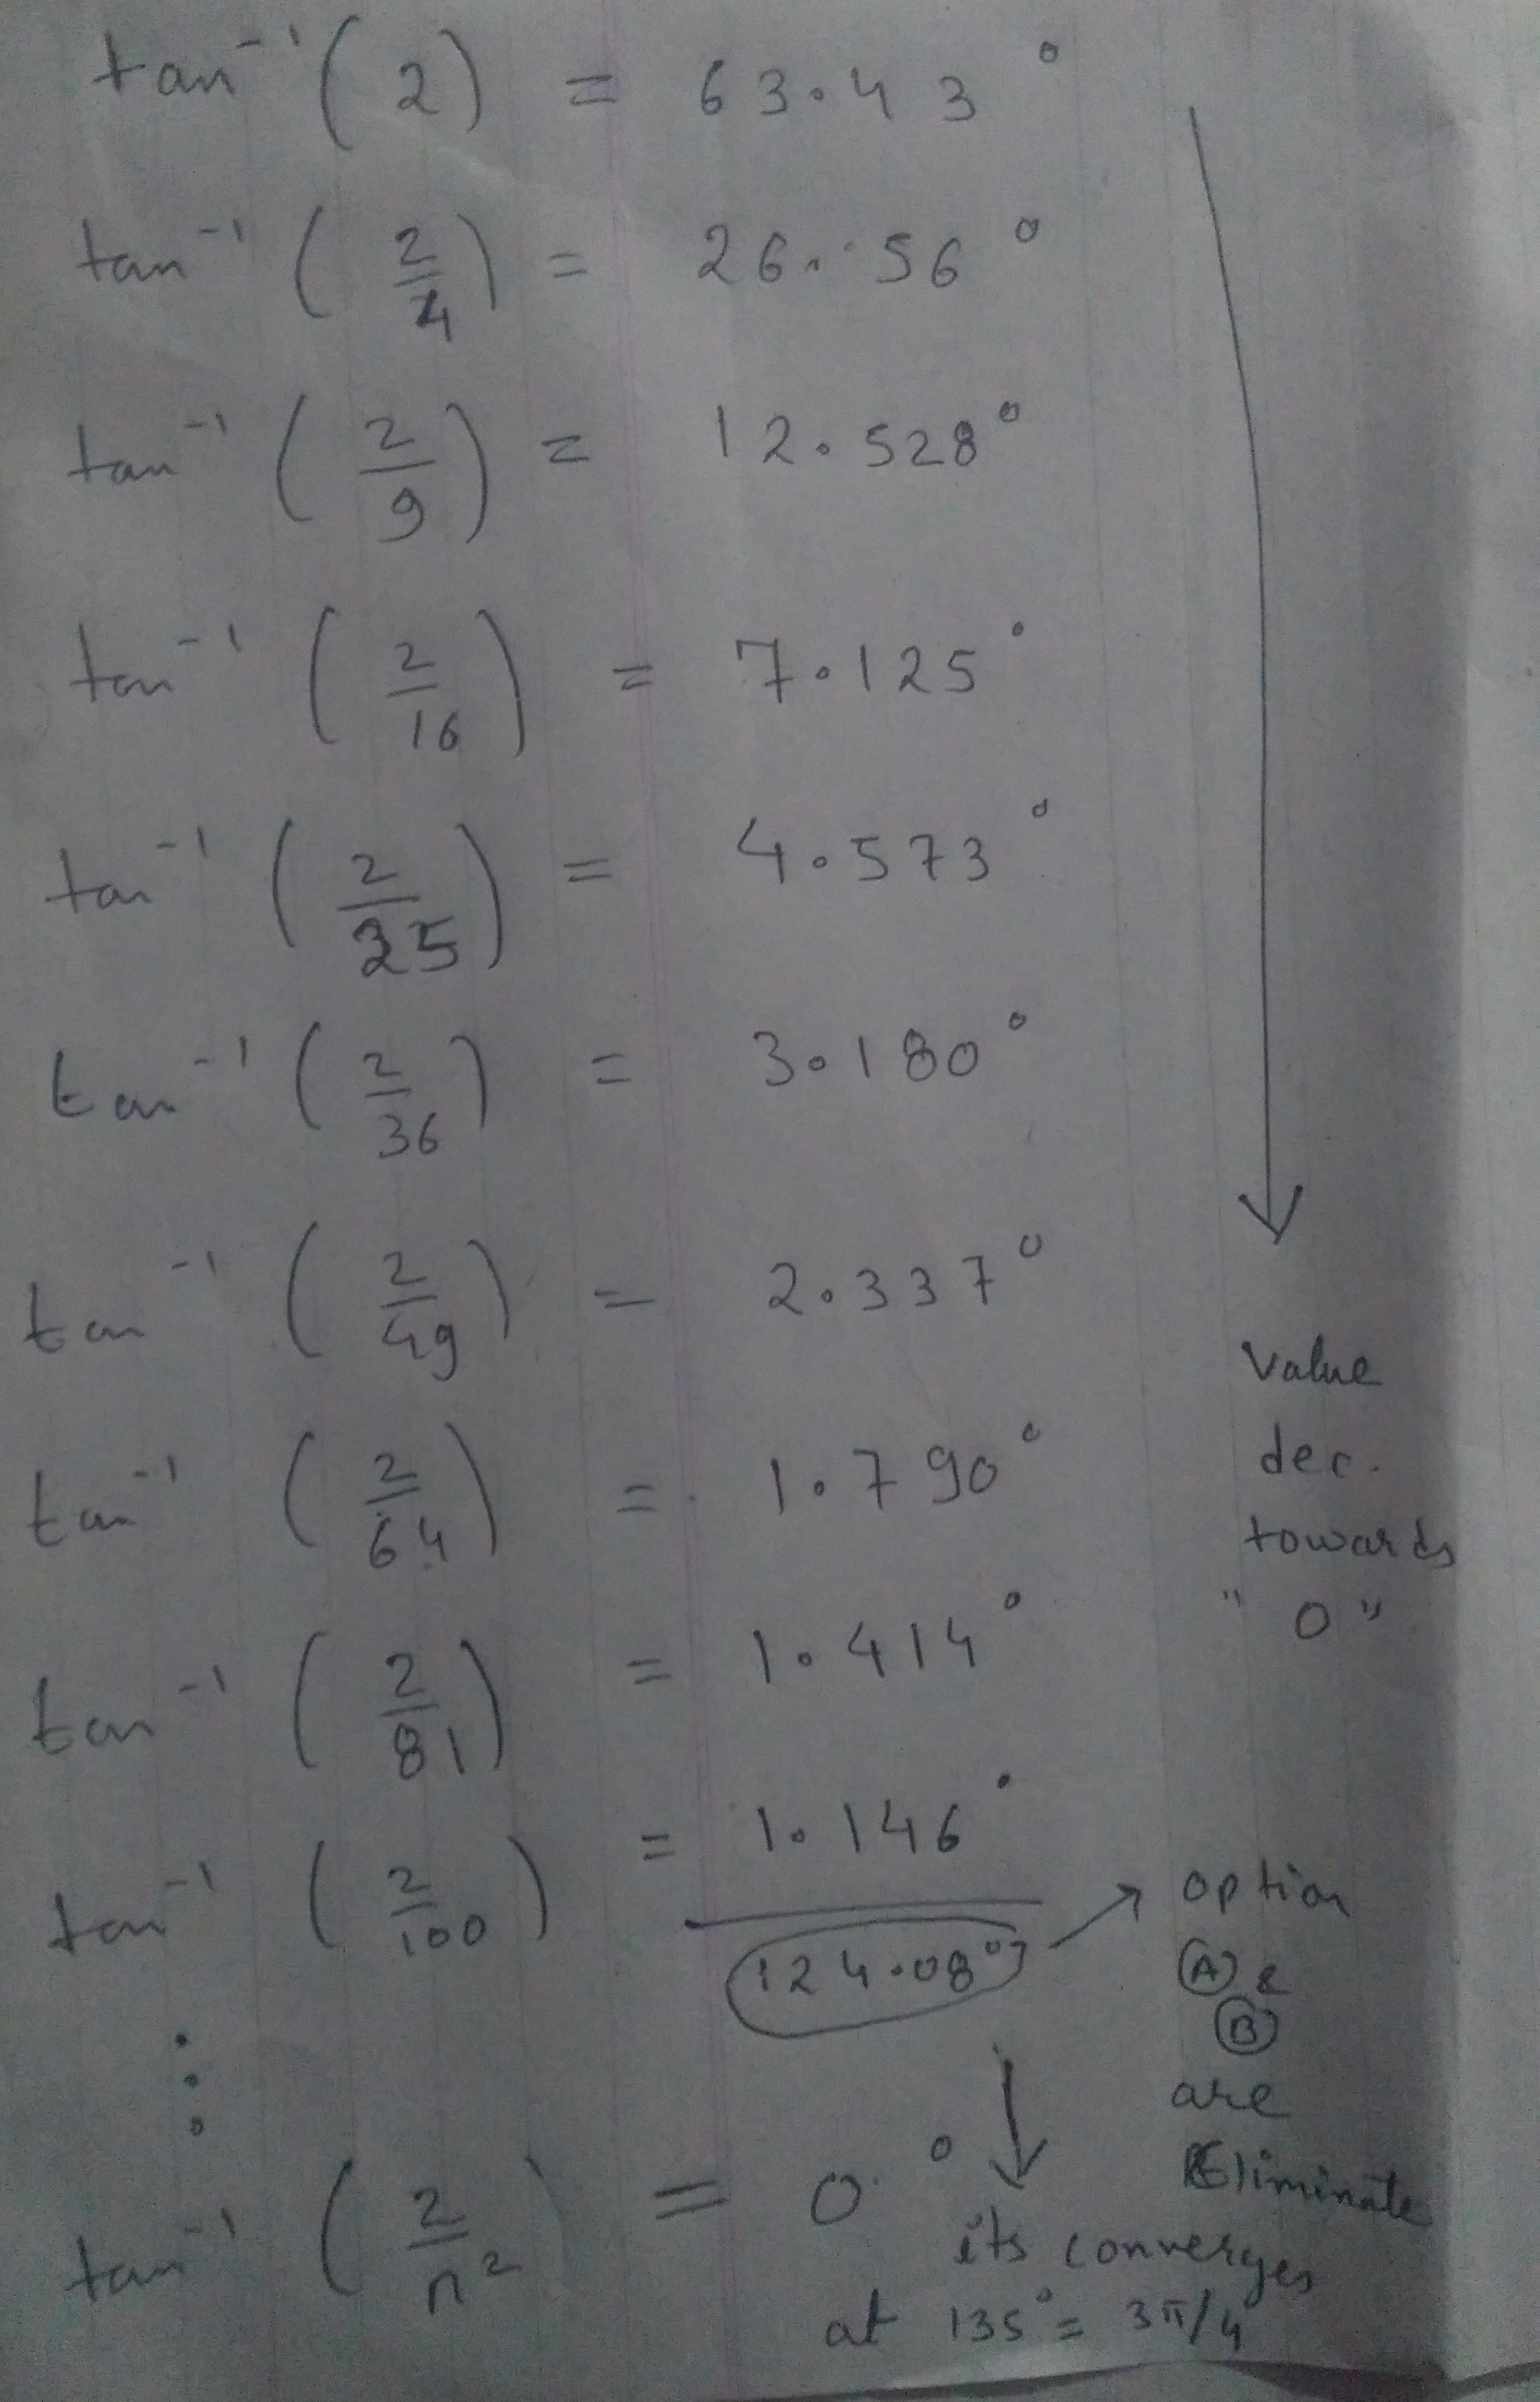 tan⁻¹ (2) = 63.43°
tan⁻¹ (2/4) = 26.56°
tan⁻¹ (2/9) = 12.528°
tan⁻¹ (2/16) = 7.125°
tan⁻¹ (2/25) = 4.573°
tan⁻¹ (2/36) = 3.180°
tan⁻¹ (2/49) = 2.337°
tan⁻¹ (2/64) = 1.790°
tan⁻¹ (2/81) = 1.414°
tan⁻¹ (2/100) = 1.146°
124.08°
⋮
tan⁻¹ (2/n²) = 0°
Value
dec.
towards
"0"
option
(A) &
(B)
are
Eliminate
its converges
at 135° = 3π/4